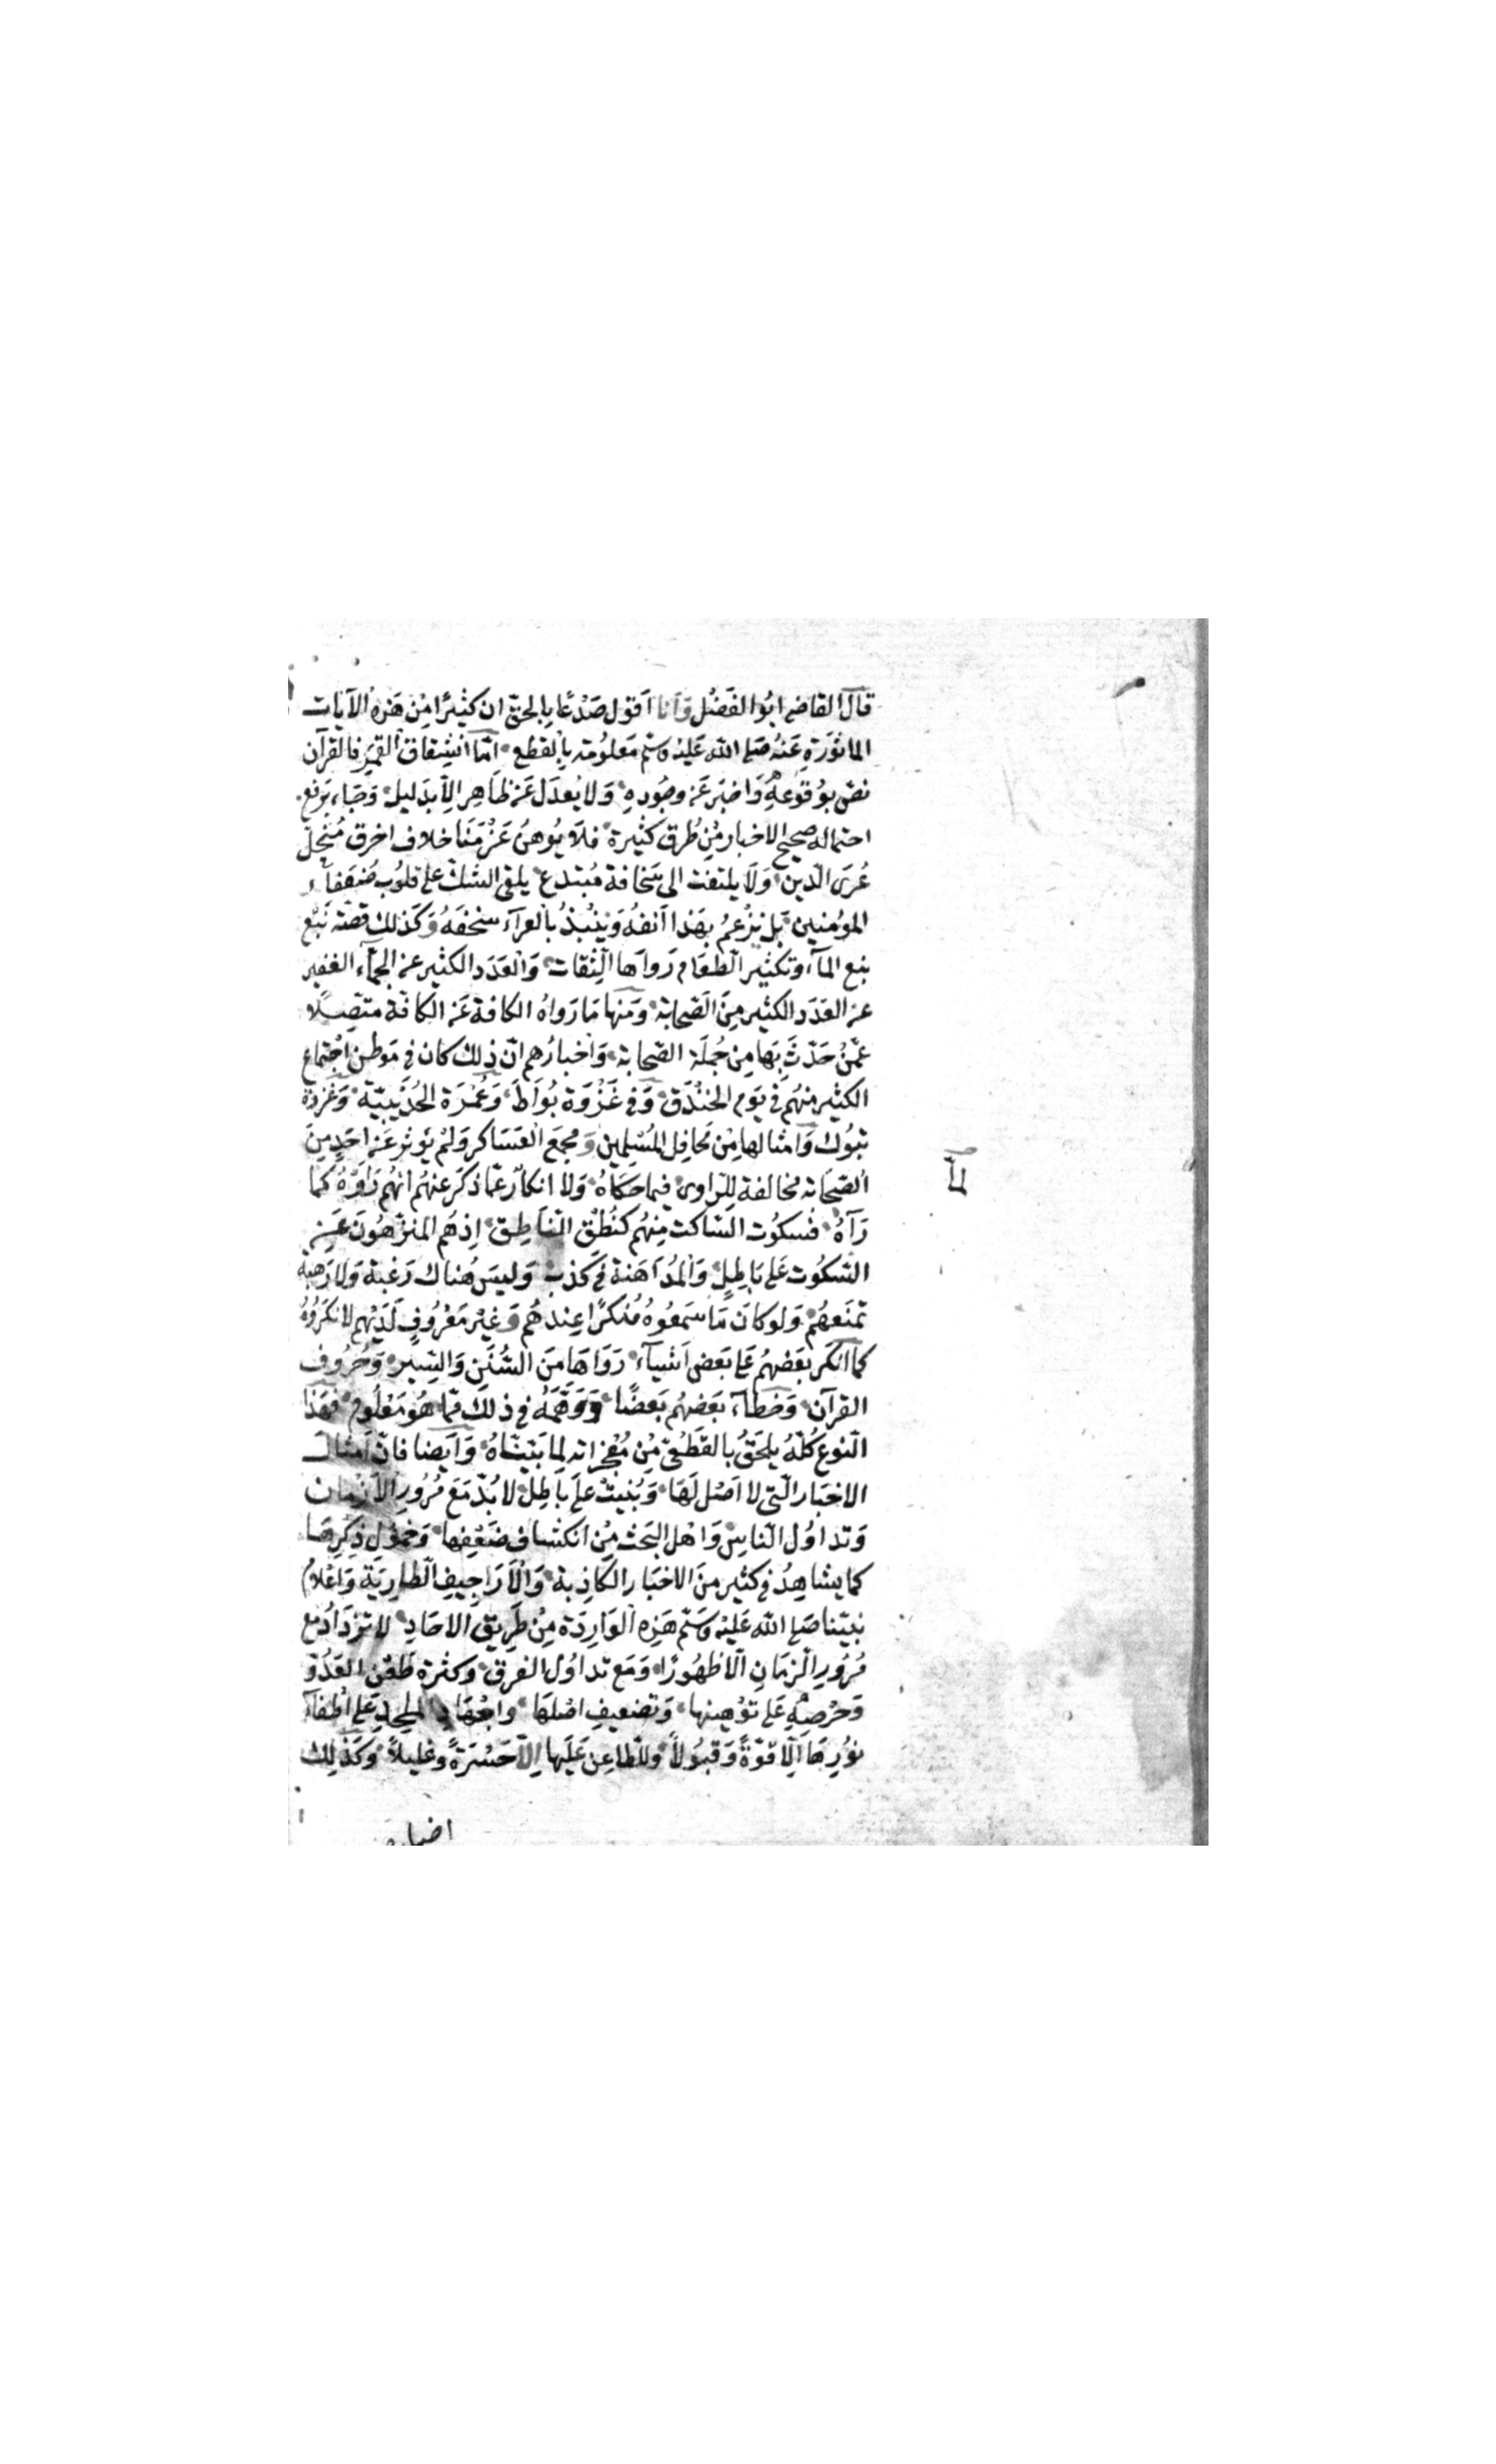 قَالَ القاضي ابُوا الفَضْل وَانا اَقول صَدْعًا بِالحقّ ان كثيرًا مِن هَذِهِ الآيات
الماثُورَةِ عَنْهُ صَلى الله عَليْه وسَلم مَعلوُمة بِالقطع امّا انشِقاق القَمَرِ فالقرآن
نصّ بوُقوُعهِ وَاخبَرَ عَن وجُودِهِ وَلا يُعدَل عَن ظَاهِرِ الاّ بدَليل وَجَاء بَرفع
احتماله صحيح الاخبار مِن طُرق كثيرة فلاَ يُوهنُ عَزْمَنَا خلاف اخرق مُنحَلّ
عُرَى الدّين وَلاَ يلتفت الى سَخَافة مُبتدع يلقى الشكّ على قلوُب ضُعَفآءِ
الموُمنين بَل نرْغمُ بهَذا اَنفهُ وَينْبُذُ بالعرآء سخفَهُ وَكَذلك قصّة نَبْع
نبع المآء وتكثير الطعَام رَواهَا الثِّقات وَالعَدَد الكثير عن الجمّآء الغفير
عن العَدَد الكثير مِنَ الصّحابة وَمنَها مَا رَواهُ الكافة عَن الكافّة متصِلاً
عمّنْ حَدّثَ بهَا مِن جُملَة الصّحابة وَاخبارُهم انّ ذلك كان في مَوطن اجْتماع
الكثير منهُم في يَوم الخنْدَق وَفي غَزْوَة بُوَاطَ وَعُمْرَة الحُدَيبيّة وَغَزوَة
تبُوك وَامثالها مِن مَحافِل المُسْلِمين وَمجمَع العَسَاكر وَلمْ يُوثر عَن احَدٍ مِنَ
الصّحَابَة مخالفة لِلرّاوى فيما حَكَاهُ وَلا انكار عمّا ذكرَ عنهُم انهُم رَاَوْهُ كما
رَآهُ فسكُوت السّاكت مِنهُم كنُطْق النّاطِق اِذ هُم المنزّهُونَ عَن
السّكُوت عَلى بَاطِل وَالمُدَاهَنة في كَذِب وَليسَ هُناك رَغبة وَلا رَهبة
تمنَعهُم وَلو كانَ مَا سَمعُوهُ مُنكَرًا عِندهُم وَغيْر مَعْرُوفٍ لَدَيْهِم لانكَرُوهُ
كما انكَر بَعضهُم عَلى بَعض اَشيآء رَوَاهَا مِنَ السُّنَنِ وَالسِّيَرِ وَحُرُوف
القرآن وَخطآء بَعضهُم بَعضًا وَوَهَّمَهُ في ذلكَ ممّا هُوَ مَعْلُوم فهَذا
النّوع كُلّهُ يلحَقُ بالقَطْعىّ مِن مُعْجزاته لِما بَيّنّاهُ وَاَيضا فانّ اَمثال
الاخبَار الّتى لا اصْل لَهَا وَبُنِيَتْ عَلى بَاطِلٍ لا بُدّ مَعَ مُرُورِ الاَزْمان
وَتداوُل النّاسِ وَاهل البَحث مِن انكشاف ضَعْفِها وَخموُل ذِكرِهَا
كما يشاهِدُ في كثير مِنَ الاخبَار الكاذِبة وَالاَرَاجِيفِ الطّارِيَة وَاعْلامُ
نبيّنا صَلى الله عَليْه وَسَلّم هَذِهِ الوَارِدَة مِن طَرِيق الاحَادِ لا تزدَادُ مع
مُرُورِ الزمَانِ الاّ ظهُورًا وَمَع تداوُل الفرق وكثرة طَعْن العَدُوّ
وَحْرصِهِ عَلى توْهينها وَتضعيفِ اصْلهَا وَاجْهَادِ الملحِد عَلى اطفآء
نوُرِهَا اِلاّ قوّةً وَقبوُلاً وللطّاعِن عَليَها اِلاّ حَسْرَةً وَغليلاً وَكذلِك